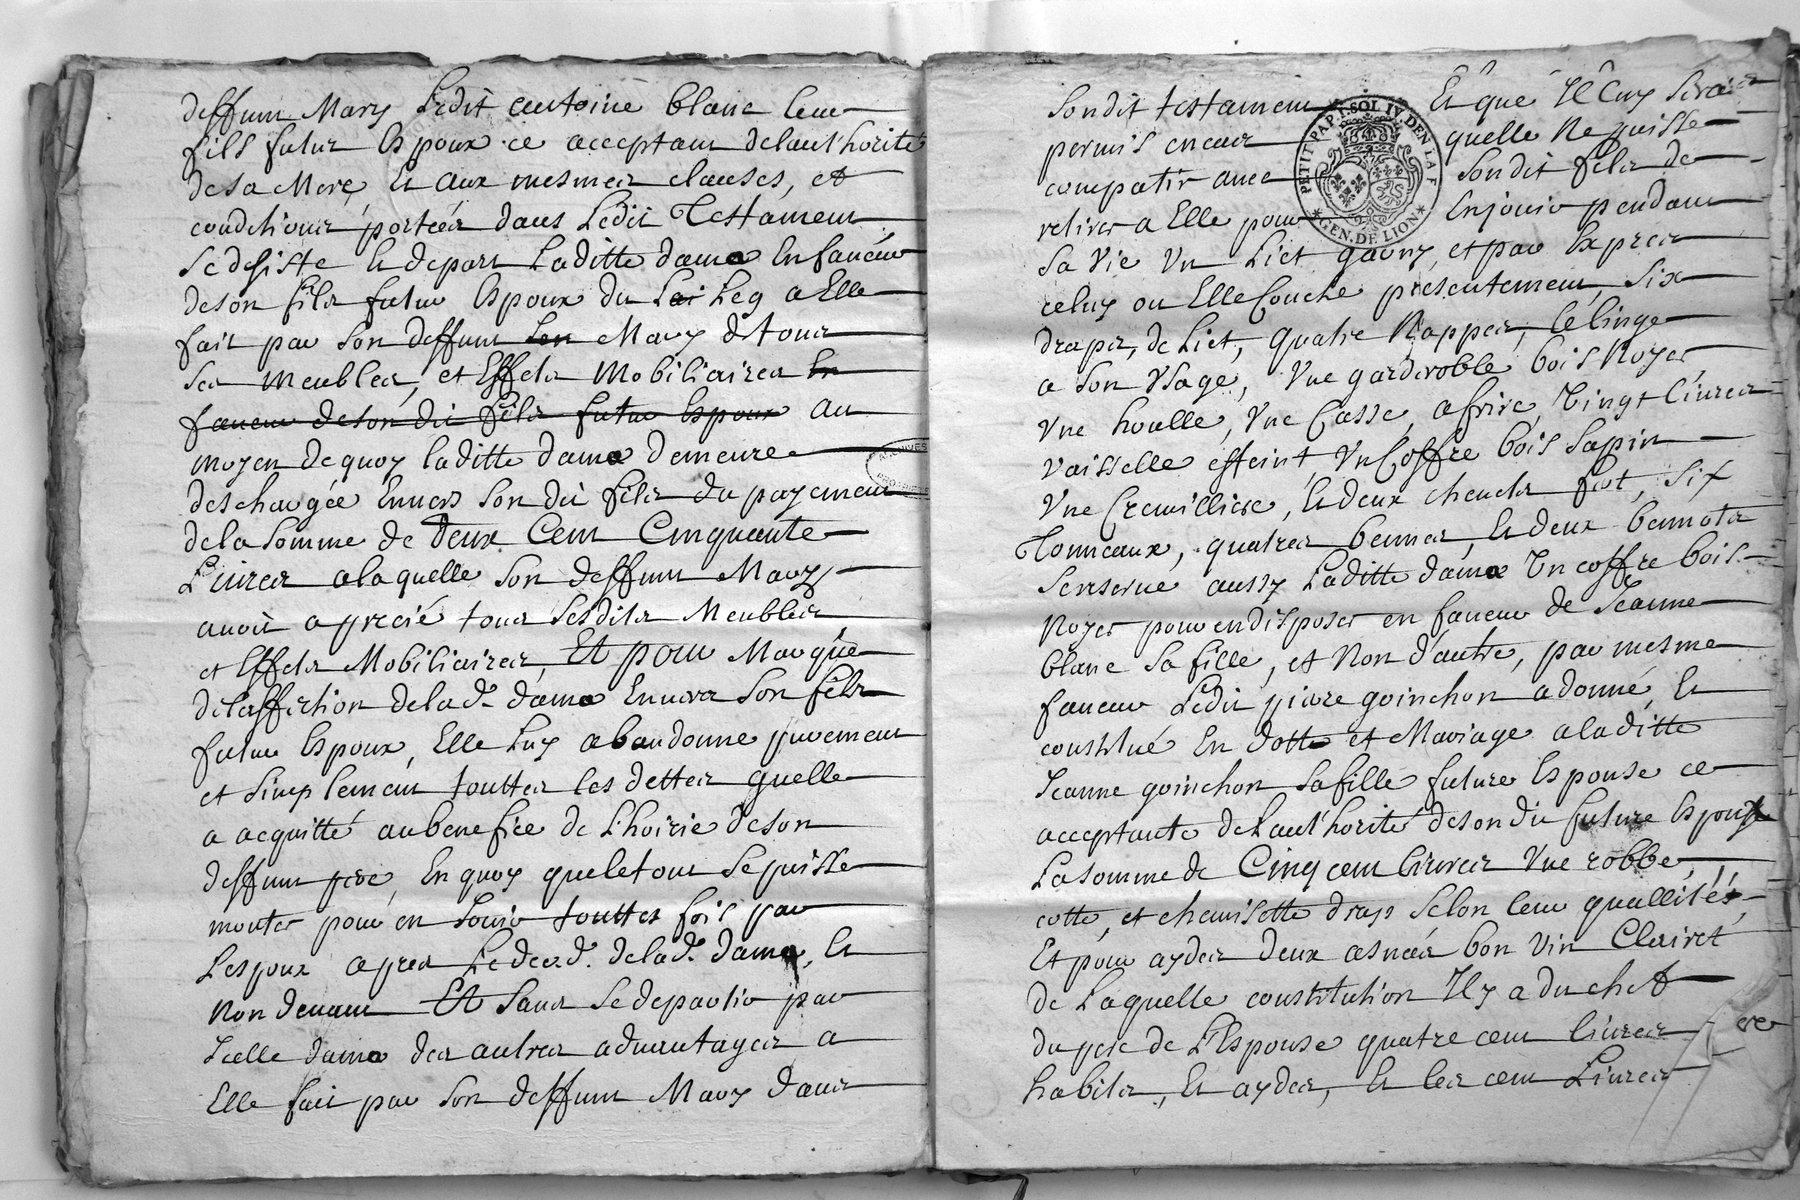 deffunt Mary Ledit antoine blanc leur
fils futur Espoux ce acceptant delauthorité
desa Mere, Et aux mesmes clauses, et
conditions portées dans Ledit Testament
se desiste Et depart Laditte dama En faueur
deson fils futur Espoux du Leg a Elle
fait par son deffunt Mary de tous
ses meubles, et Effets Mobiliaires En
faueur deson dit fils futur Espoux au
moyen de quoy laditte dama demeure
deschargée Enuers son dit fils du payement
dela somme de deux Cent Cinquante
Liures alaquelle son deffunt Mary
auoit aprecié tous sesdits Meubles
et Effets Mobiliaires, Et pour Marque
delaffection dela de. dama Enuers son fils
futur Espoux, Elle Luy abandonne purement
et simplement touttes les dettes quelle
a acquitté au benefice de Lhoirie deson
deffunt pere, En quoy queletout se puisse
monter pour en Jouir touttes fois par
Lespoux apres Le deced. dela de. dama, Et
Non deuant Et sans se departir par
Icelle dama des autres aduantages a
Elle fait par son deffunt Mary dans
sondit testament Et que Il Luy sera
permis encas quelle Ne puisse
compatir auec son dit fils de
retirer a Elle pour Enjouir pendant
sa Vie Vn Lict garny, et par Exprès
celuy ou Elle Couche presentement, six
draps, de Lict, quatre Nappes, le linge
a son Vsage, Vne garderobbe bois Noyer
Vne houlle, Vne Casse, afrire, Vingt liures
vaisselle esteint, Vn Coffre bois sapin
Vne Cremilliere, Et deux chenets, six
Tonneaux, quatres bennes, Et deux bennots
se reserue aussy Laditte dama Vn coffre bois
Noyer pour en disposer en faueur de Jeanne
blanc sa fille, et Non d'autre, par mesme
faueur Ledit pierre goinchon adonné, Et
constitué En dotte et Mariage aladitte
Jeanne goinchon safille future Espouse ce
acceptante delauthorité deson dit future Espoux
Lasomme de Cinq cent liures Vne robbe,
cotte, et chemisette drap selon leur quallités,
Et pour aydes deux asnées bon vin Clairet
de Laquelle constitution Il y a du chef
du pere de L'Espouse quatre cent liures
habits, Et aydes, Et les cent Liures
PETIT PAP. 1. SOL IV. DEN LA F.
GEN. DE LION